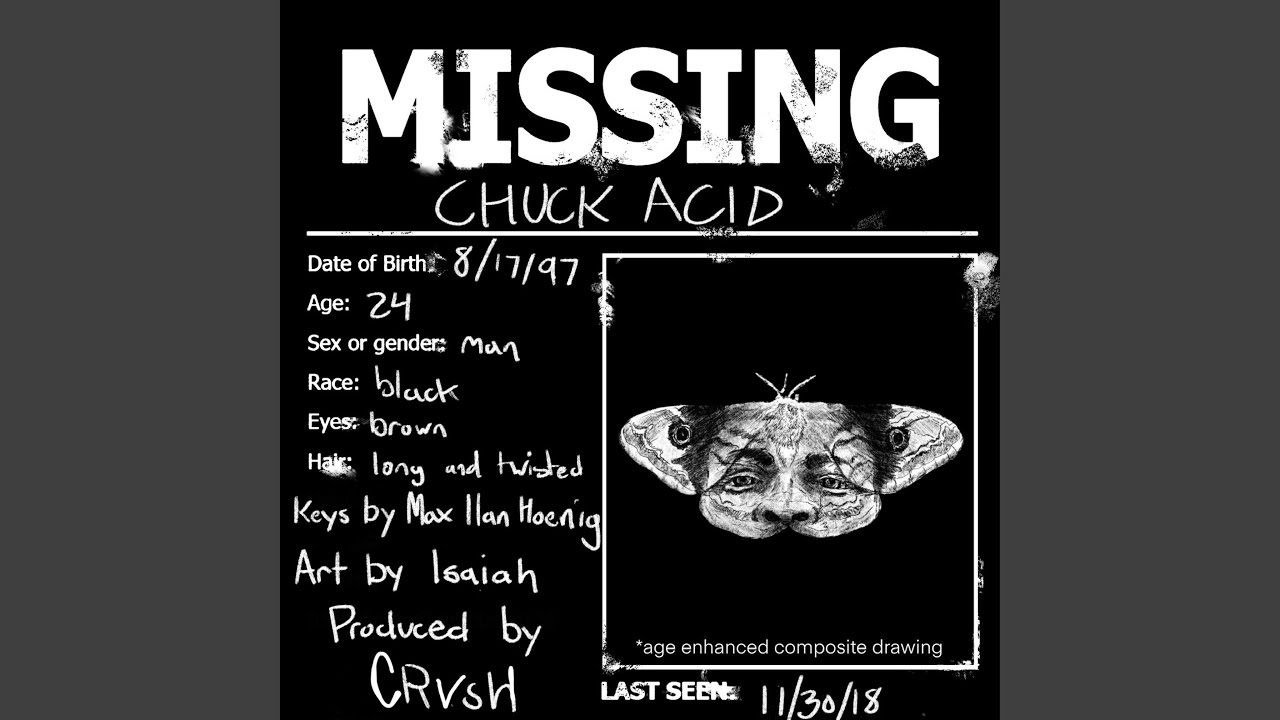 MISSING
CHUCK ACID
Date of Birth: 8/17/97
Age: 24
Sex or gender: man
Race: black
Eyes: brown
Hair: long and twisted
Keys by Max Ilan Hoenig
Art by Isaiah
Produced by
CRVSH
*age enhanced composite drawing
LAST SEEN: 11/30/18